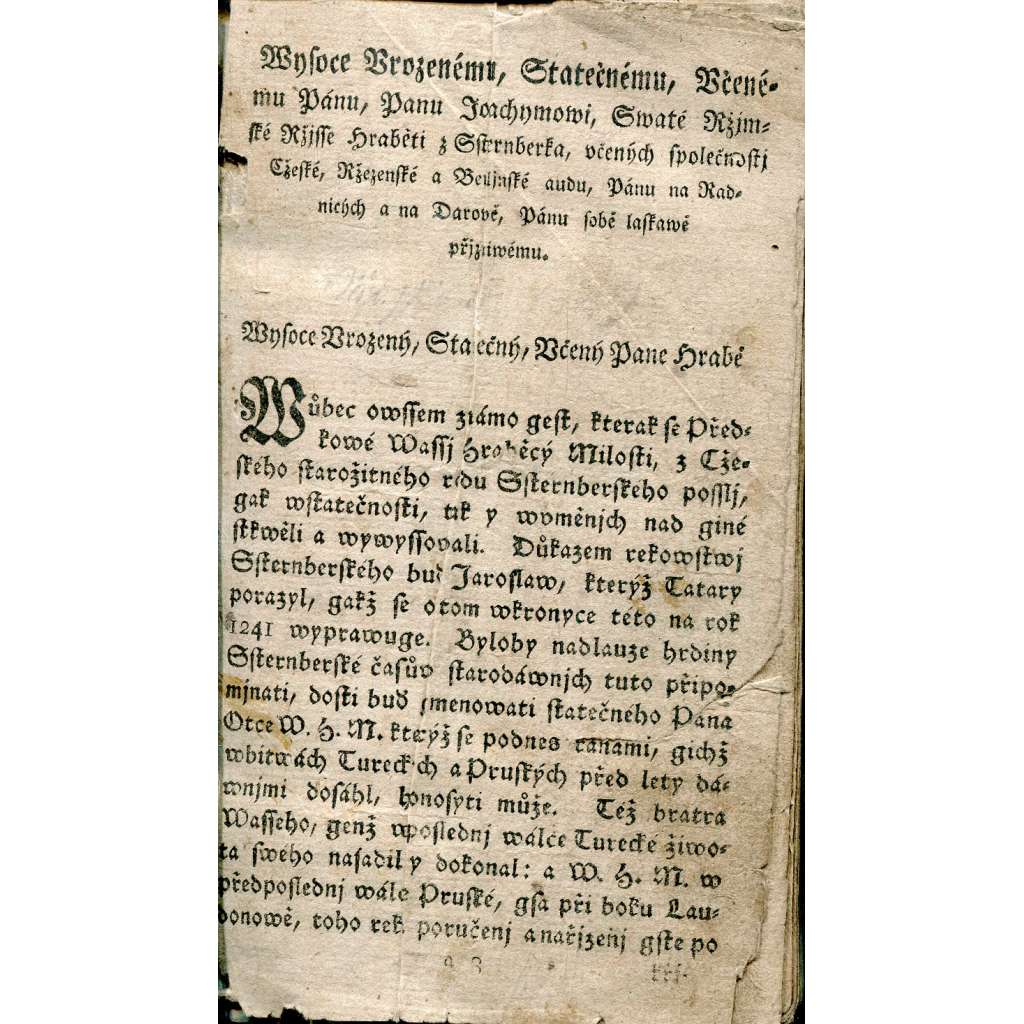 Wysoce Vrozenému, Statečnému, Včené-
mu Pánu, Panu Joachymowi, Swaté Ržjm-
ské Ržjsse Hraběti z Ssternberka, včených společnostj
Cžeské, Ržezenské a Berljnské audu, Pánu na Rad-
nicých a na Darowě, Pánu sobě laskawě
přjzniwému.
Wysoce Vrozený, Statečný, Včený Pane Hrabě
Wůbec owssem známo gest, kterak se Před-
kowé Wassj Hraběcý Milosti, z Cže-
ského starožitného rodu Ssternberského posslj,
gak wstatečnosti, tak y wvměnjch nad giné
stkwěli a wywyssovali. Důkazem rekowstwj
Ssternberského buď Jaroslaw, kterýž Tatary
porazyl, gakž se otom wkronyce této na rok
1241 wyprawuge. Byloby nadlauze hrdiny
Ssternberské časůw starodáwnjch tuto připo-
mjnati, dosti buď gmenowati statečného Pana
Otce W. H. M. kterýž se podnes ranami, gichž
wbitwách Tureckých a Pruských před lety dá-
wnjmi dosáhl, honosyti může. Též bratra
Wasseho, genž wposlednj wálce Turecké žiwo-
ta swého nasadil y dokonal: a W. H. M. w
předposlednj wálce Pruské, gsa při boku Lau-
donowě, toho rek. poručenj a nařjzenj gste po
a 3